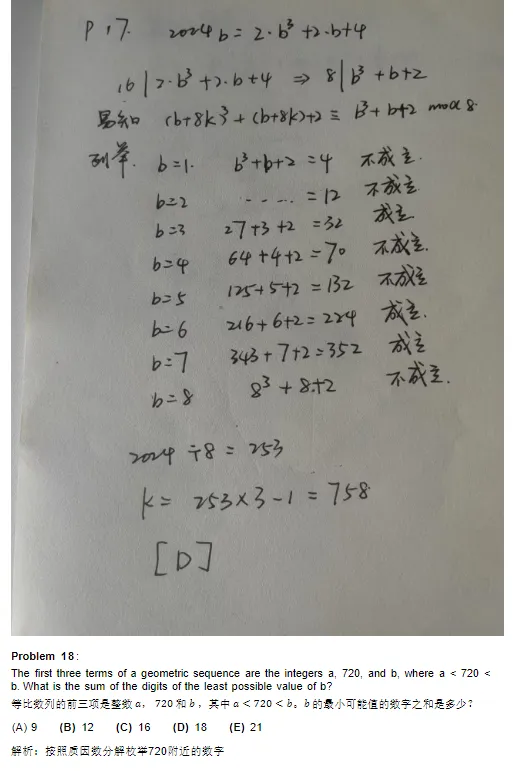 P 17. 2024b = 2·b³+2·b+4
16 | 2·b³+2·b+4 ⇒ 8 | b³+b+2
易知 (b+8k)³+(b+8k)+2 ≡ b³+b+2 mod 8
列举. b=1. b³+b+2 = 4 不成立.
b=2 ..... = 12 不成立.
b=3 27+3+2 = 32 成立.
b=4 64+4+2 = 70 不成立.
b=5 125+5+2 = 132 不成立
b=6 216+6+2 = 224 成立.
b=7 343+7+2 = 352 成立
b=8 8³+8+2 不成立.
2024 ÷ 8 = 253
k = 253×3-1 = 758
[D]
Problem 18:
The first three terms of a geometric sequence are the integers a, 720, and b, where a < 720 <
b. What is the sum of the digits of the least possible value of b?
等比数列的前三项是整数 a， 720 和 b，其中 a < 720 < b。b 的最小可能值的数字之和是多少?
(A) 9 (B) 12 (C) 16 (D) 18 (E) 21
解析：按照质因数分解枚举720附近的数字